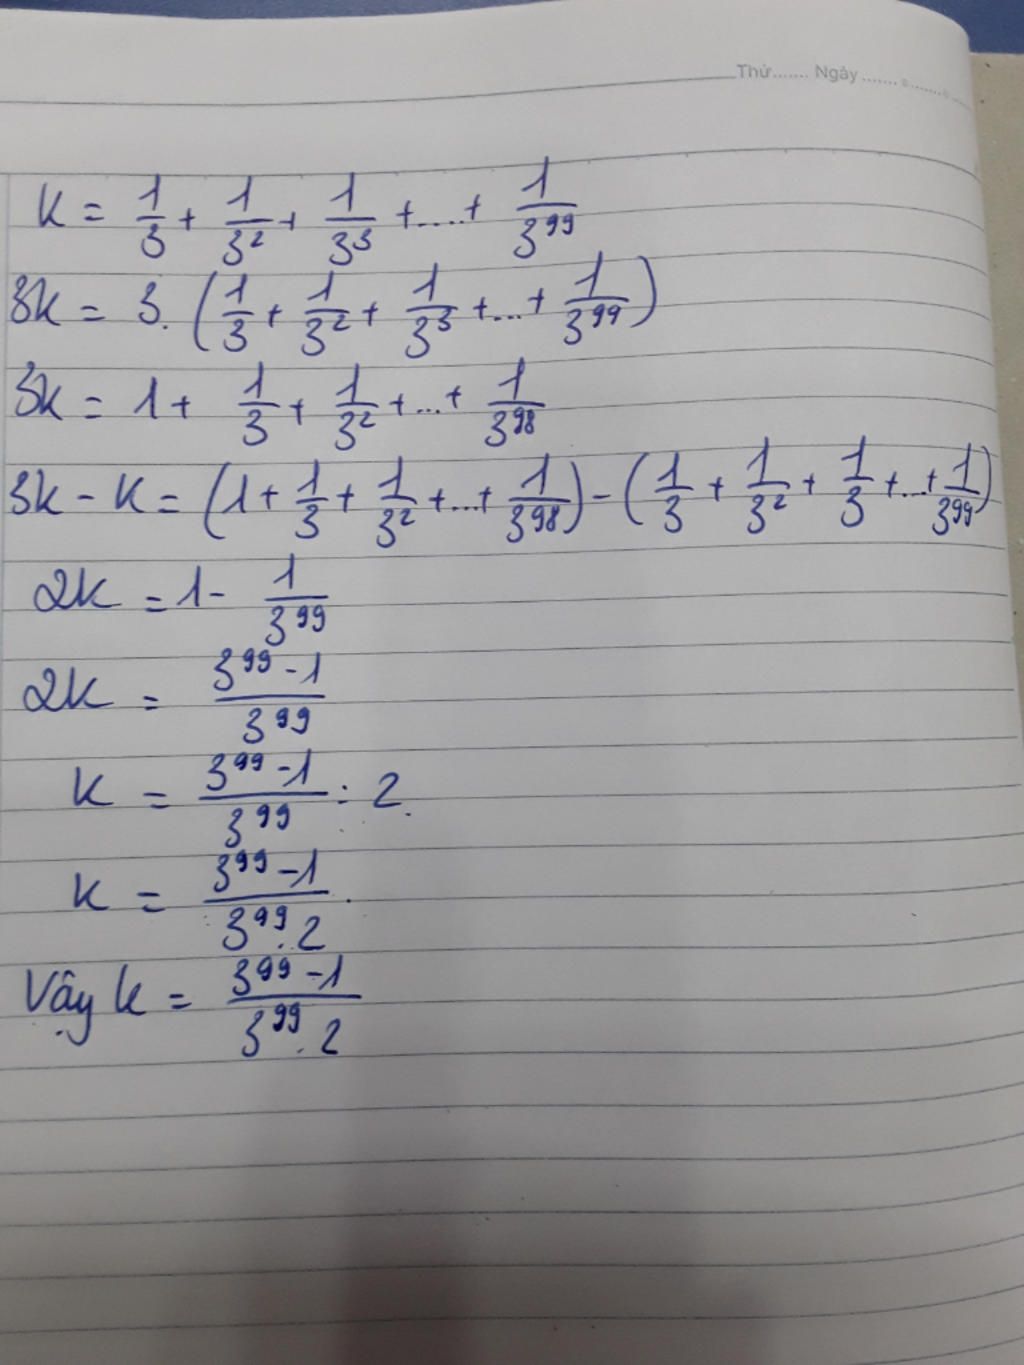 Thứ....... Ngày ....... . ....... .
K = 1/3 + 1/3² + 1/3³ + .... + 1/3⁹⁹
3K = 3. (1/3 + 1/3² + 1/3³ + ... + 1/3⁹⁹)
3K = 1 + 1/3 + 1/3² + ... + 1/3⁹⁸
3K - K = (1 + 1/3 + 1/3² + ... + 1/3⁹⁸) - (1/3 + 1/3² + 1/3 + ... + 1/3⁹⁹)
2K = 1 - 1/3⁹⁹
2K = (3⁹⁹ - 1)/3⁹⁹
K = (3⁹⁹ - 1)/3⁹⁹ : 2.
K = (3⁹⁹ - 1)/(3⁹⁹ . 2) .
Vậy K = (3⁹⁹ - 1)/(3⁹⁹ . 2)